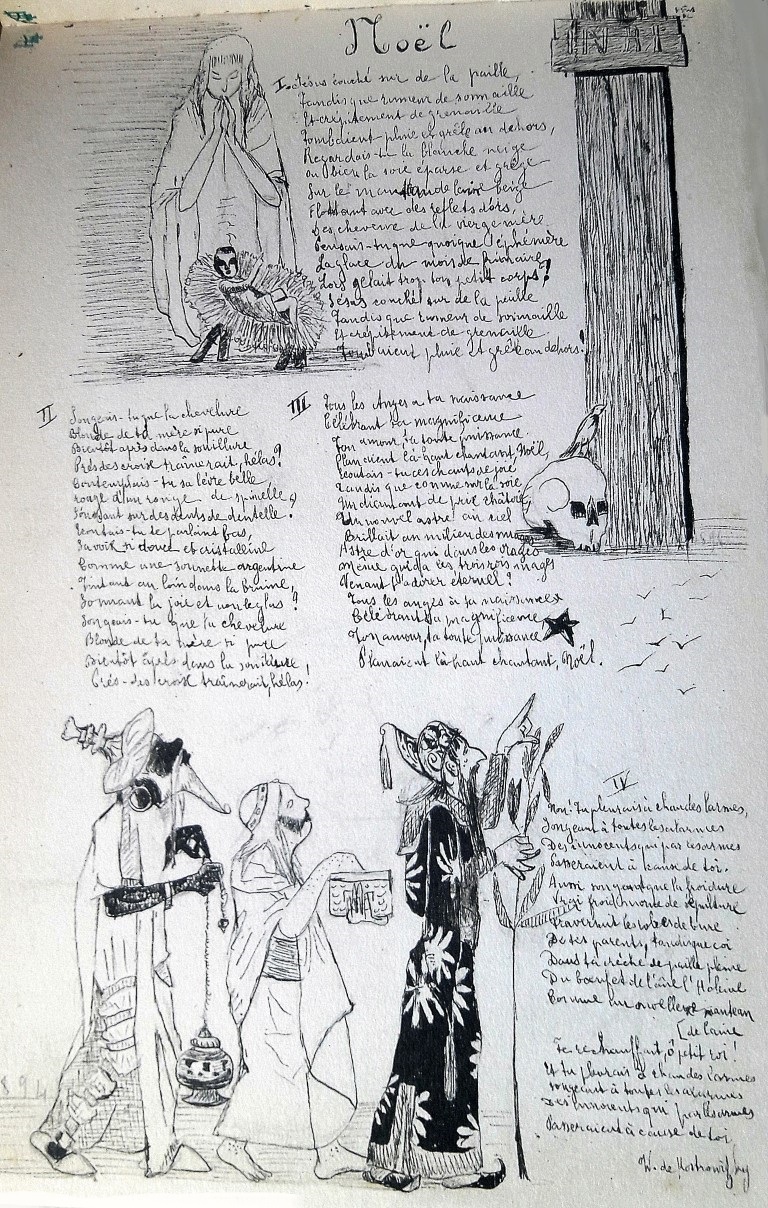 Noël
INRI
I. Jésus couché sur de la paille,
Tandis que rumeur de sonnaille
Et crépitement de grenaille
Tombaient pluie et grêle au dehors,
Regardais-tu la blanche neige
ou bien la soie éparse et grège
Sur le manteau de laine beige
Flottant avec des reflets d'ors,
Des cheveux de la vierge-mère
Pensais-tu que quoique éphémère
La glace du mois de frimaire
Lors gelait trop ton petit corps!
Jésus couché sur de la paille
Tandis que rumeur de sonnaille
Et crépitement de grenaille
Tombaient pluie et grêle au dehors!
II
Songeais-tu que la chevelure
Blonde de ta mère si pure
Bientôt après dans la souillure
Près des croix traînerait, hélas?
Contemplais-tu sa lèvre belle
rouge d'un rouge de spinelle,
Songeant sur des dents de dentelle?
Ecoutais-tu te parlant bas,
Sa voix si douce et cristalline
Comme une sonnette argentine
Tintant au loin dans la brume,
Sonnant la joie et non le glas?
Songeais-tu que la chevelure
Blonde de ta mère si pure
Bientôt après dans la souillure
Près-des croix traînerait, hélas!
III
Tous les Anges à ta naissance
Célébrant ta magnificence
Ton amour, ta toute puissance
Planaient là-haut chantant, Noël,
Ecoutais-tu ces chants de joie
Tandis que comme sur la soie
Un diamant de prix
Un nouvel astre au ciel
Brillait au milieu des
Astre d'or qui dans les
même guida les trois rois mages
Venant t'adorer éternel?
Tous les anges à ta naissance
Célébrant ta magnificence
Ton amour, ta toute puissance
Planaient là-haut chantant, Noël.
IV
Non! Tu pleurais à chaudes larmes,
Songeant à toutes les alarmes
Des innocents qui par les armes
Passeraient à cause de toi.
Aussi songeant que la froidure
Vrai froid morne de sépulture
Traversait les robes de bure
De tes parents, tandis que coi
Dans ta crèche de paille pleine
Du bœuf et de l'âne l'Haleine
Comme un moelleux manteau
[de laine
Te rechauffant, ô petit roi!
Et tu pleurais à chaudes larmes
songeant à toutes les alarmes
Des innocents qui par les armes
Passeraient à cause de toi
W. de Kostrowitzky
1894